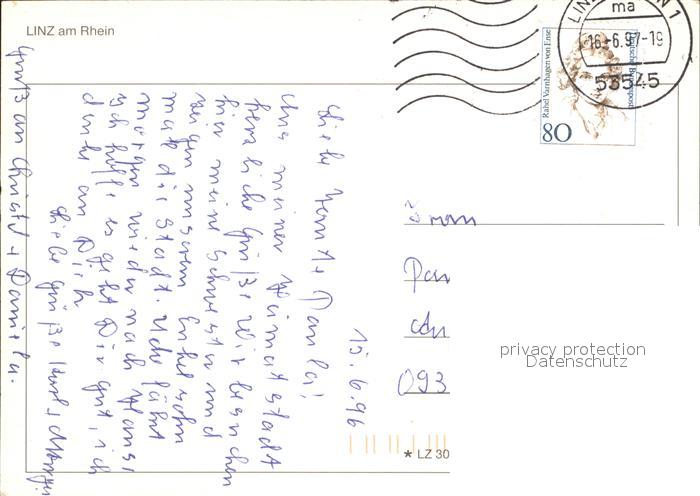 LINZ am Rhein
LINZ
N 1
ma
16.-6.97-19
53545
Rahel Varnhagen von Ense
Deutsche Bundespost
80
15.6.96
Liebe
Aus meiner Heimatstadt
herzliche Grüße. Wir besuchen
hier meine Schwester und
zeigen unserem Enkelsohn
mal die Stadt.
morgen wieder nach Haus,
ich hoffe es geht Dir gut, ich
denke an Dich
Liebe Grüße
Gruß an Christel + Daniela.
Frau
093
* LZ 30
privacy protection
Datenschutz